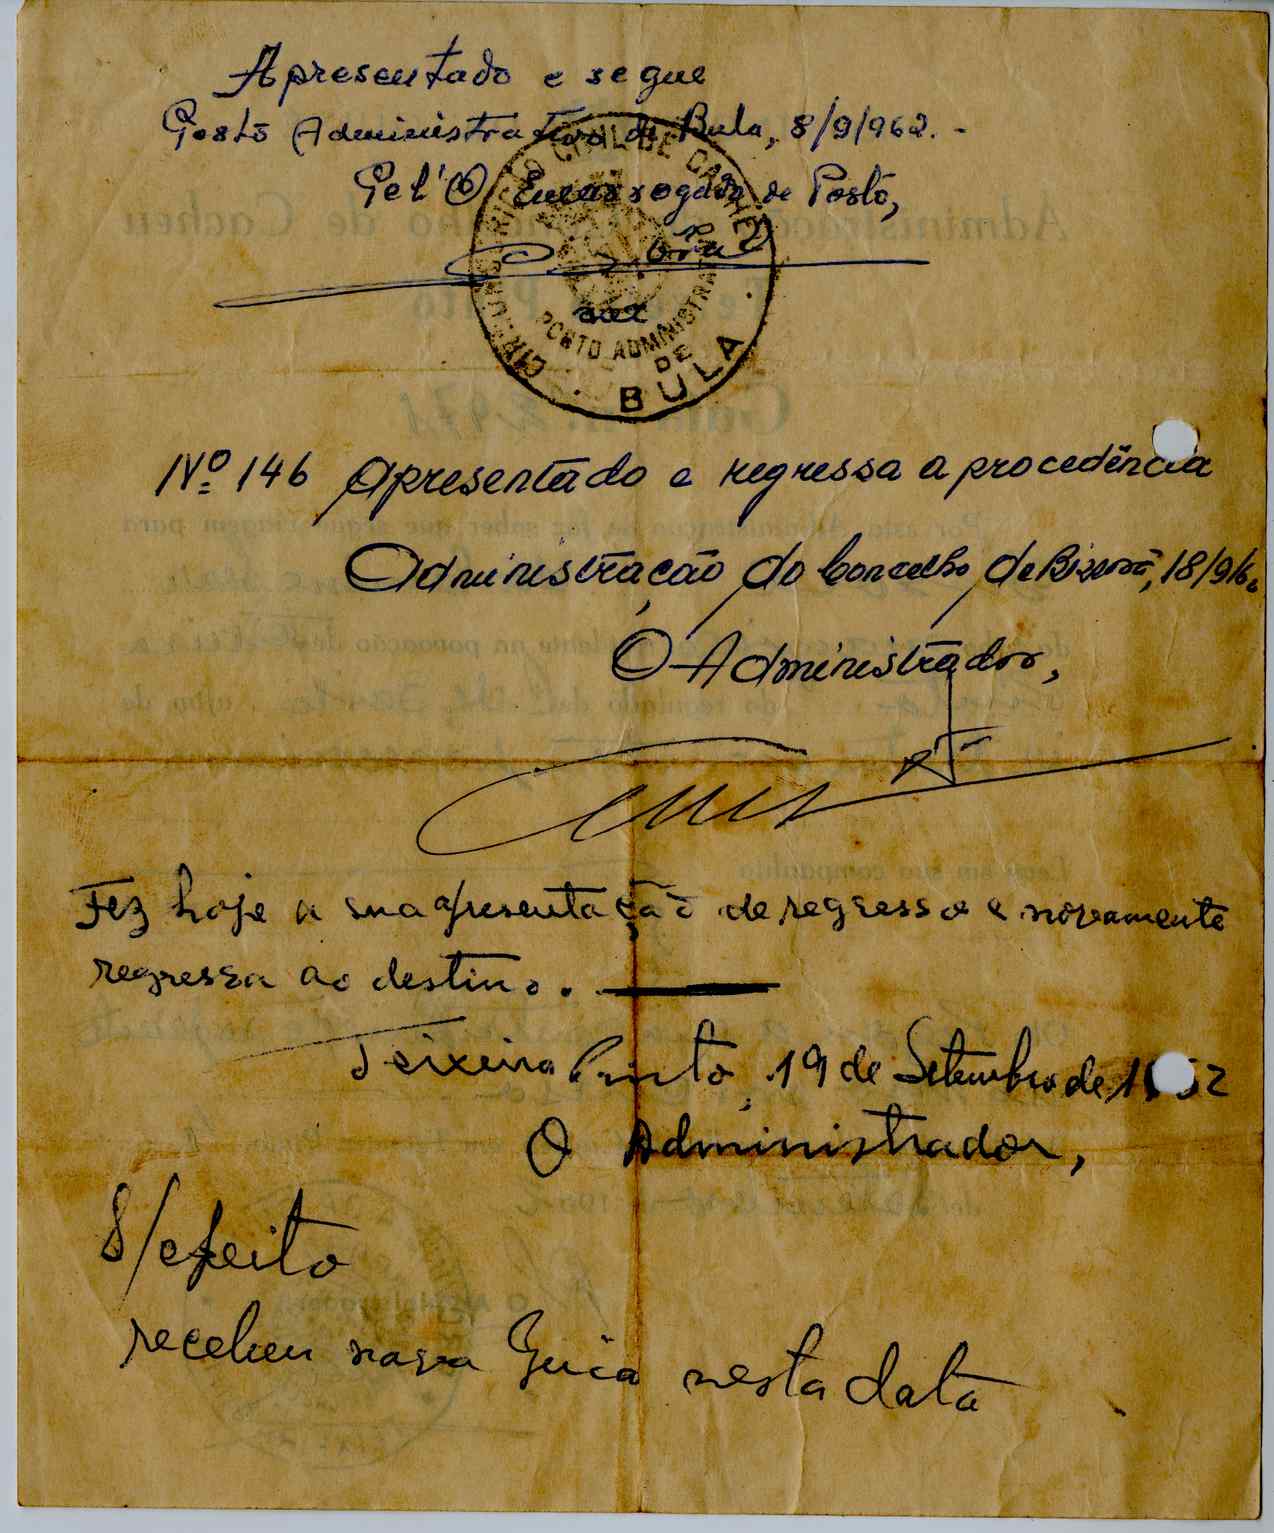 Apresentado e segue
Posto Administrativo de Bula, 8/9/962. -
Pel'O Encarregado de Posto,
CIRCUNSCRIÇÃO CIVIL DE CACHEU
POSTO ADMINISTRATIVO
DE
BULA
Nº 146 Apresentado e regressa a procedência
Administração do Concelho de Bissorã, 18/9/62
O Administrador,
Fez hoje a sua apresentação de regresso e novamente
regressa ao destino.
Teixeira Pinto, 19 de Setembro de 1962
O Administrador,
S/efeito
recebeu nova Guia nesta data